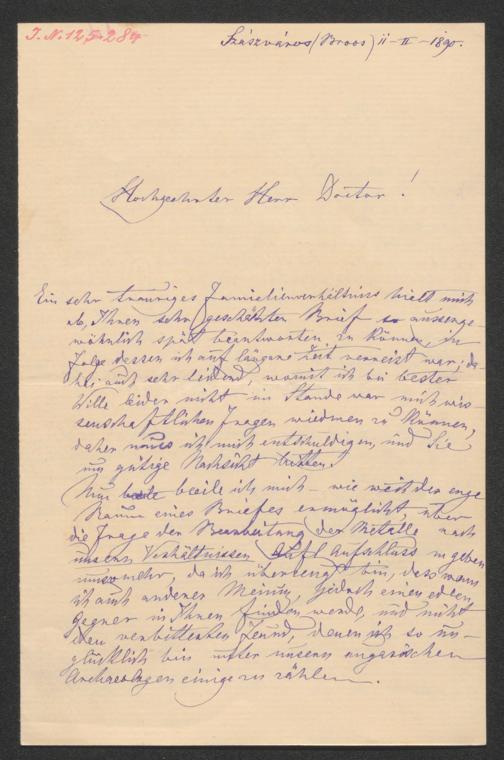 J. N. 125284
Szászváros (Broos) 11-II-1890.
Hochgeehrter Herr Doctor!
Ein sehr trauriges Familienverhältniss hielt mich
ab, Ihnen sehr geschätzten Brief so aussenge-
wöhnlich spät beantworten zu können, in
Folge dessen ich auf längere Zeit verreist war, da-
bei auch sehr leidend, womit ich bei bester
Wille leider nicht im Stande war mich wis-
senschaftlichen Fragen wiedmen zu können,
daher muss ich mich entschuldigen, und Sie
um gütige Nachsicht bitten!
Nun beeile ich mich – wie weit der enge
Raum eines Briefes ermöglicht, über
die Frage der Bearbeitung der Metalle nach
unsern Verhältnissen Aufschluss zu geben
umsomehr, da ich überzeugt bin, dass wenn
ich auch anderer Meinung, jedoch einen edlen
Gegner in Ihnen finden werde, und nicht
den verbitterten Feind, denen ich so un-
glücklich bin unter unsern ungarischen
Archaeologen einige zu zählen.